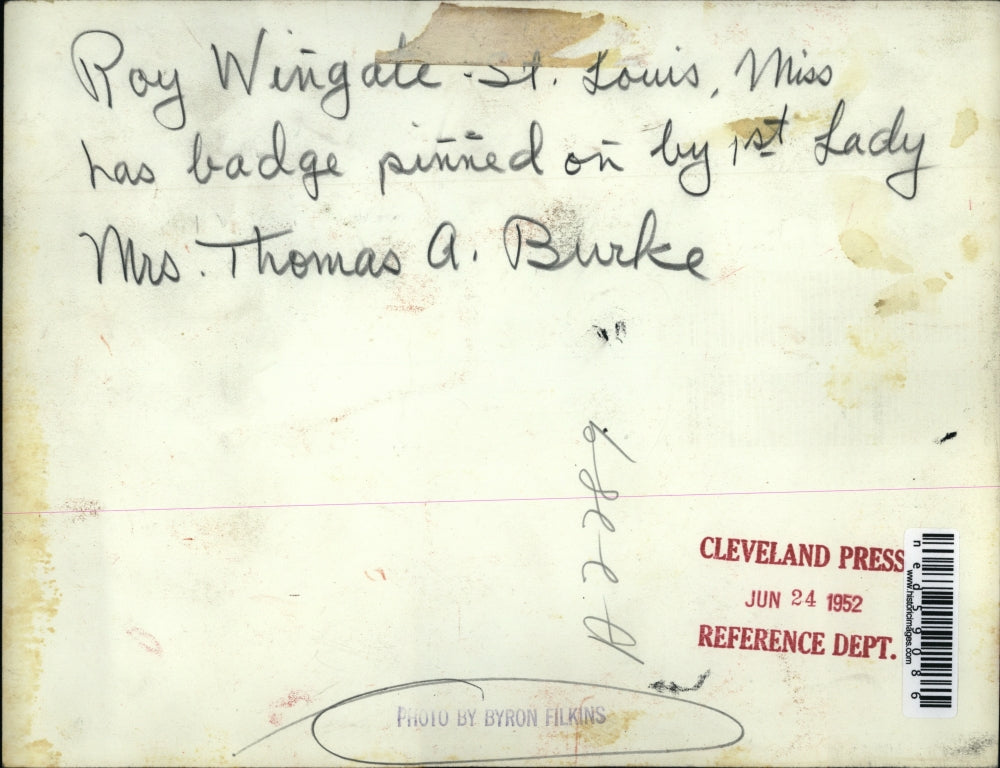 Roy Wingate - St. Louis, Miss
has badge pinned on by 1st Lady
Mrs. Thomas A. Burke
CLEVELAND PRESS
JUN 24 1952
REFERENCE DEPT.
PHOTO BY BYRON FILKINS
www.historicimages.com
ned59086